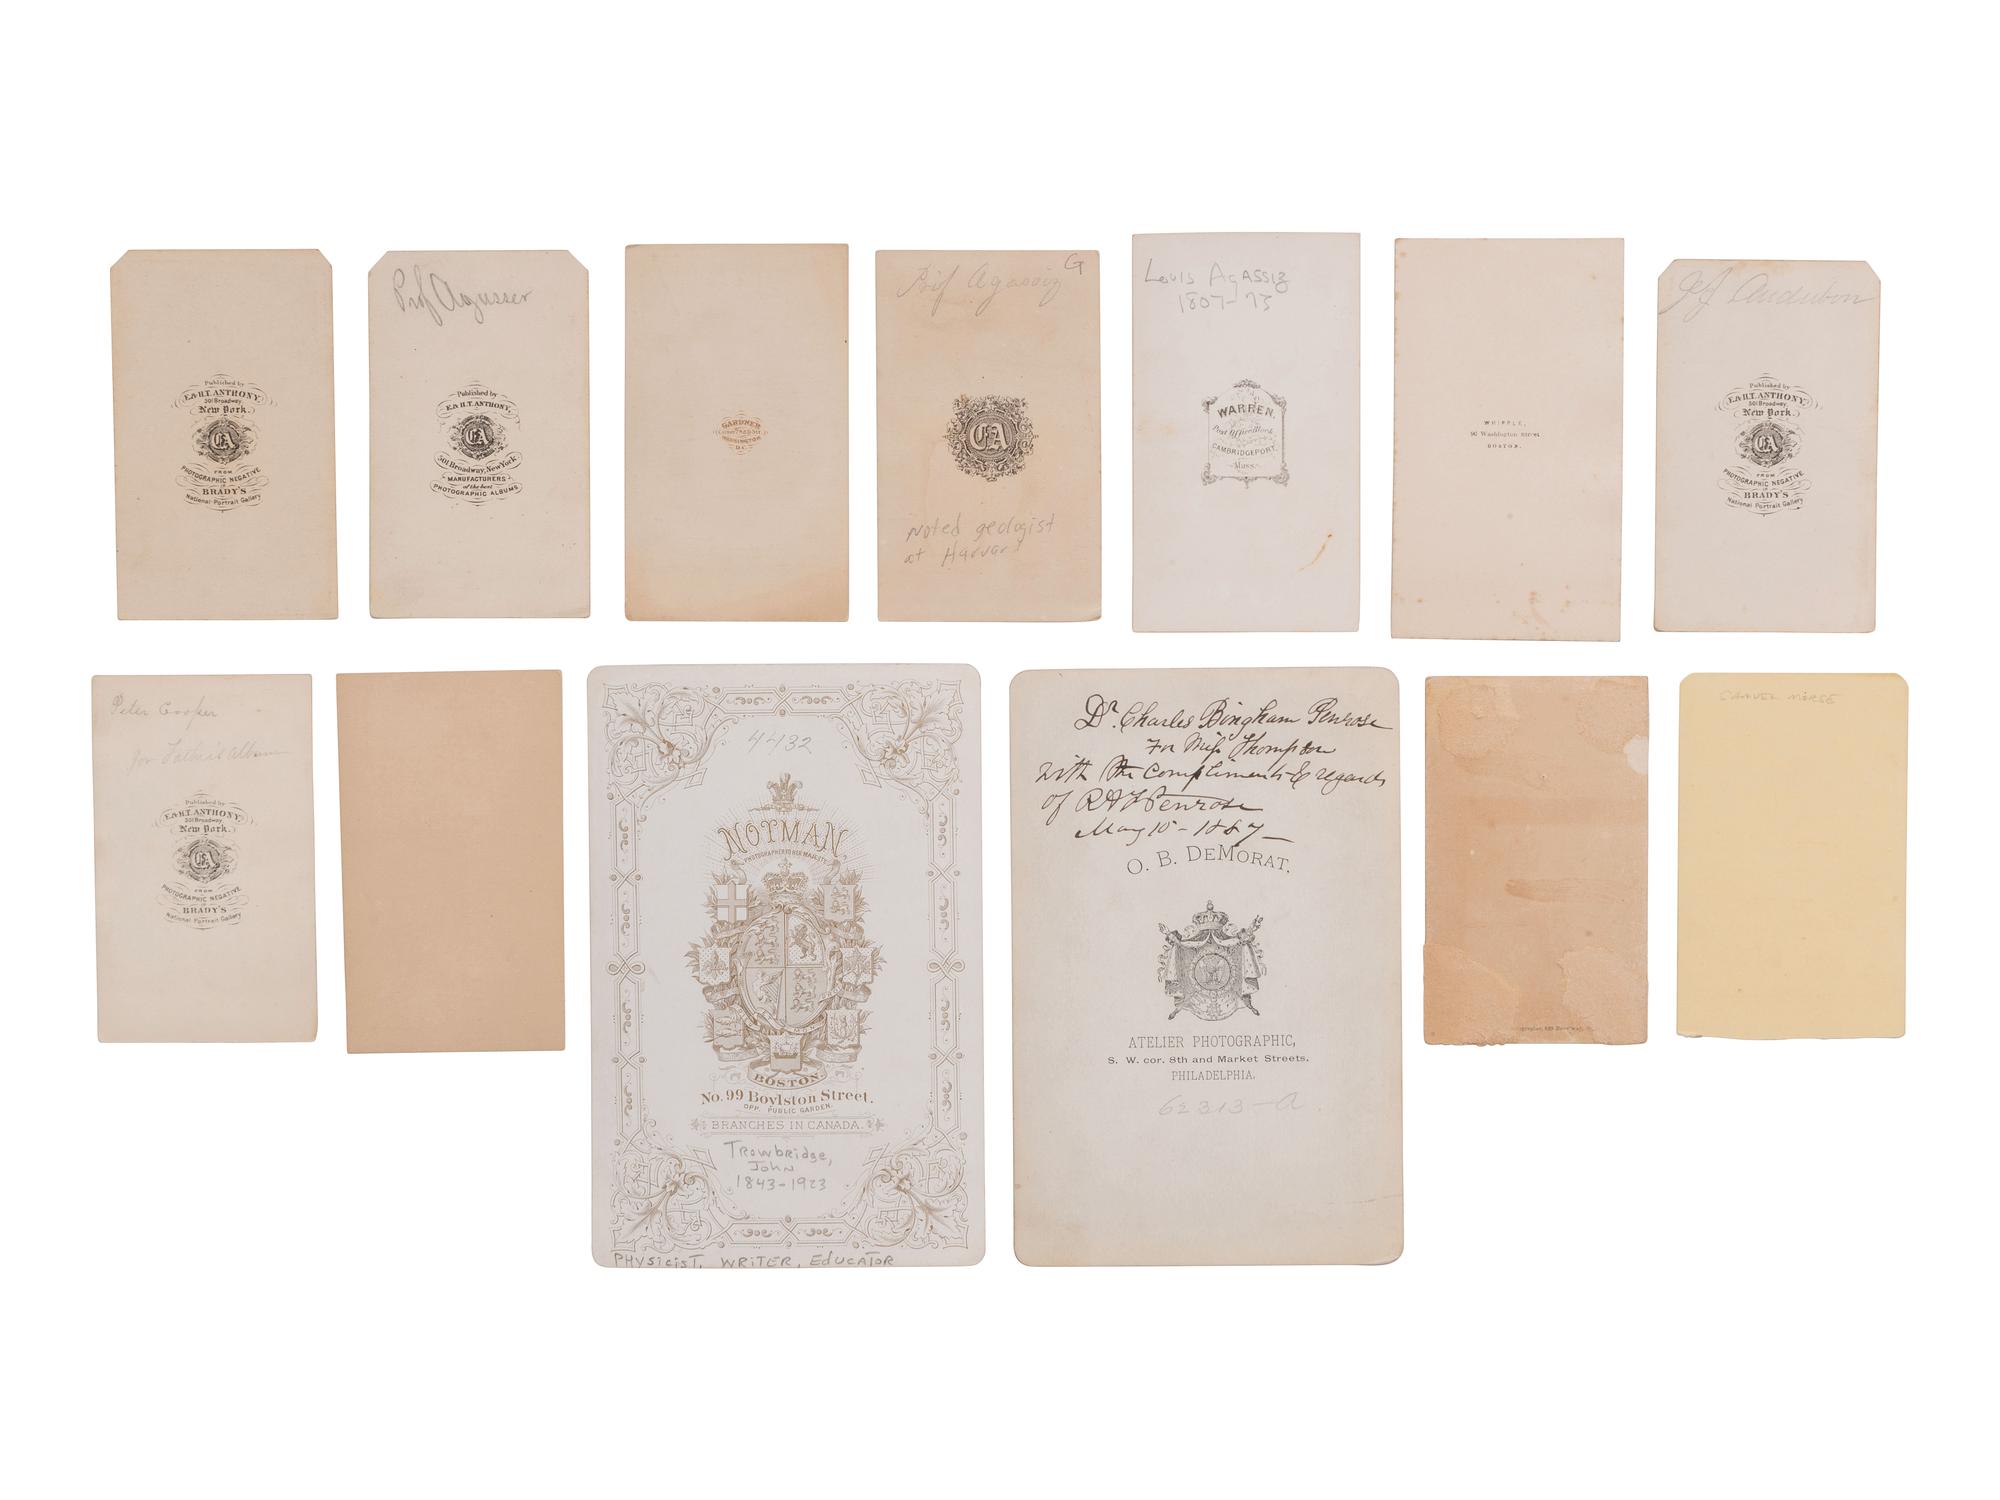 Published by
E. & H.T. ANTHONY,
501 Broadway.
New York.
EA
FROM
PHOTOGRAPHIC NEGATIVE
IN
BRADY'S
National Portrait Gallery
Prof Agasser
Published by
E. & H.T. ANTHONY,
EA
501 Broadway, New York
MANUFACTURERS
of the best
PHOTOGRAPHIC ALBUMS
GARDNER
WASHINGTON
D.C.
Prof Agassiz
G
EA
Noted geologist
at Harvard
Louis Agassiz
1807-73
WARREN,
Post Office Block
CAMBRIDGEPORT,
Mass.
WHIPPLE,
96 Washington Street
BOSTON.
Audubon
Published by
E. & H.T. ANTHONY,
501 Broadway.
New York.
EA
FROM
PHOTOGRAPHIC NEGATIVE
IN
BRADY'S
National Portrait Gallery
Peter Cooper
for Father's Album
Published by
E. & H.T. ANTHONY,
501 Broadway
New York.
EA
FROM
PHOTOGRAPHIC NEGATIVE
IN
BRADY'S
National Portrait Gallery
4432
NOTMAN
PHOTOGRAPHER TO HER MAJESTY
BOSTON.
No. 99 Boylston Street.
OPP. PUBLIC GARDEN.
BRANCHES IN CANADA.
Trowbridge,
John
1843-1923
PHYSICIST, WRITER, EDUCATOR
Dr. Charles Bingham Penrose
For Miss Thompson
with the Compliments & regards
of R A F Penrose
May 15 - 1887
O. B. DEMORAT.
ATELIER PHOTOGRAPHIC,
S. W. cor. 8th and Market Streets.
PHILADELPHIA.
62313-A
SAMUEL MORSE